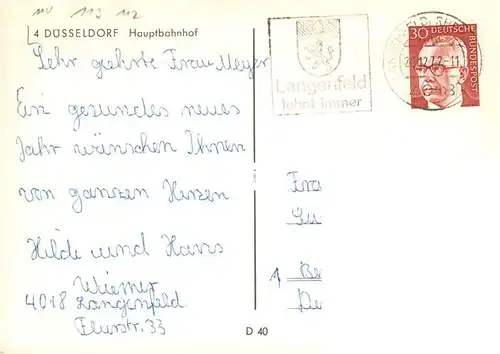 110 113 112
4 DÜSSELDORF Hauptbahnhof
Sehr geehrte Frau Meyer
Ein gesundes neues
Jahr wünschen Ihnen
von ganzen Herzen
Hilde und Hans
Wiemer
4018 Langenfeld
Flurstr. 33
Langenfeld
lohnt immer
30 DEUTSCHE
BUNDESPOST
D 40
Fra
1 Be
De